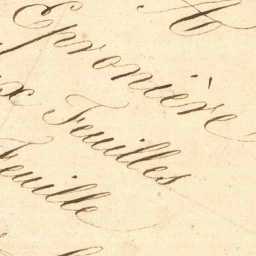 Epronière
Feuilles
Feuille